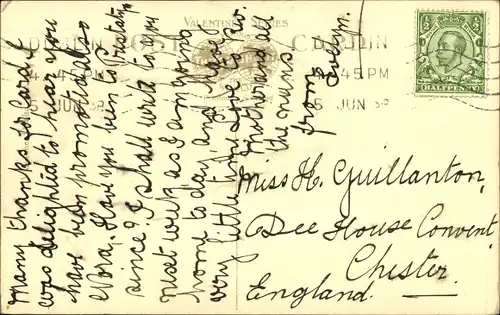 VALENTINE'S SERIES
POST CARD
DUBLIN
4.45 PM
5 JUN
DUBLIN
45 PM
5 JUN
HALFPENNY
Many thanks for card I
was delighted to hear you
have been promoted also
Nora. Have you been to
since? I shall write to you
next week as I am going
home to day, and have
very little time. Love to Rev.
Mother and all
the nuns
from
Evelyn.
Miss H. Guillanton,
Dee House Convent,
Chester.
England.